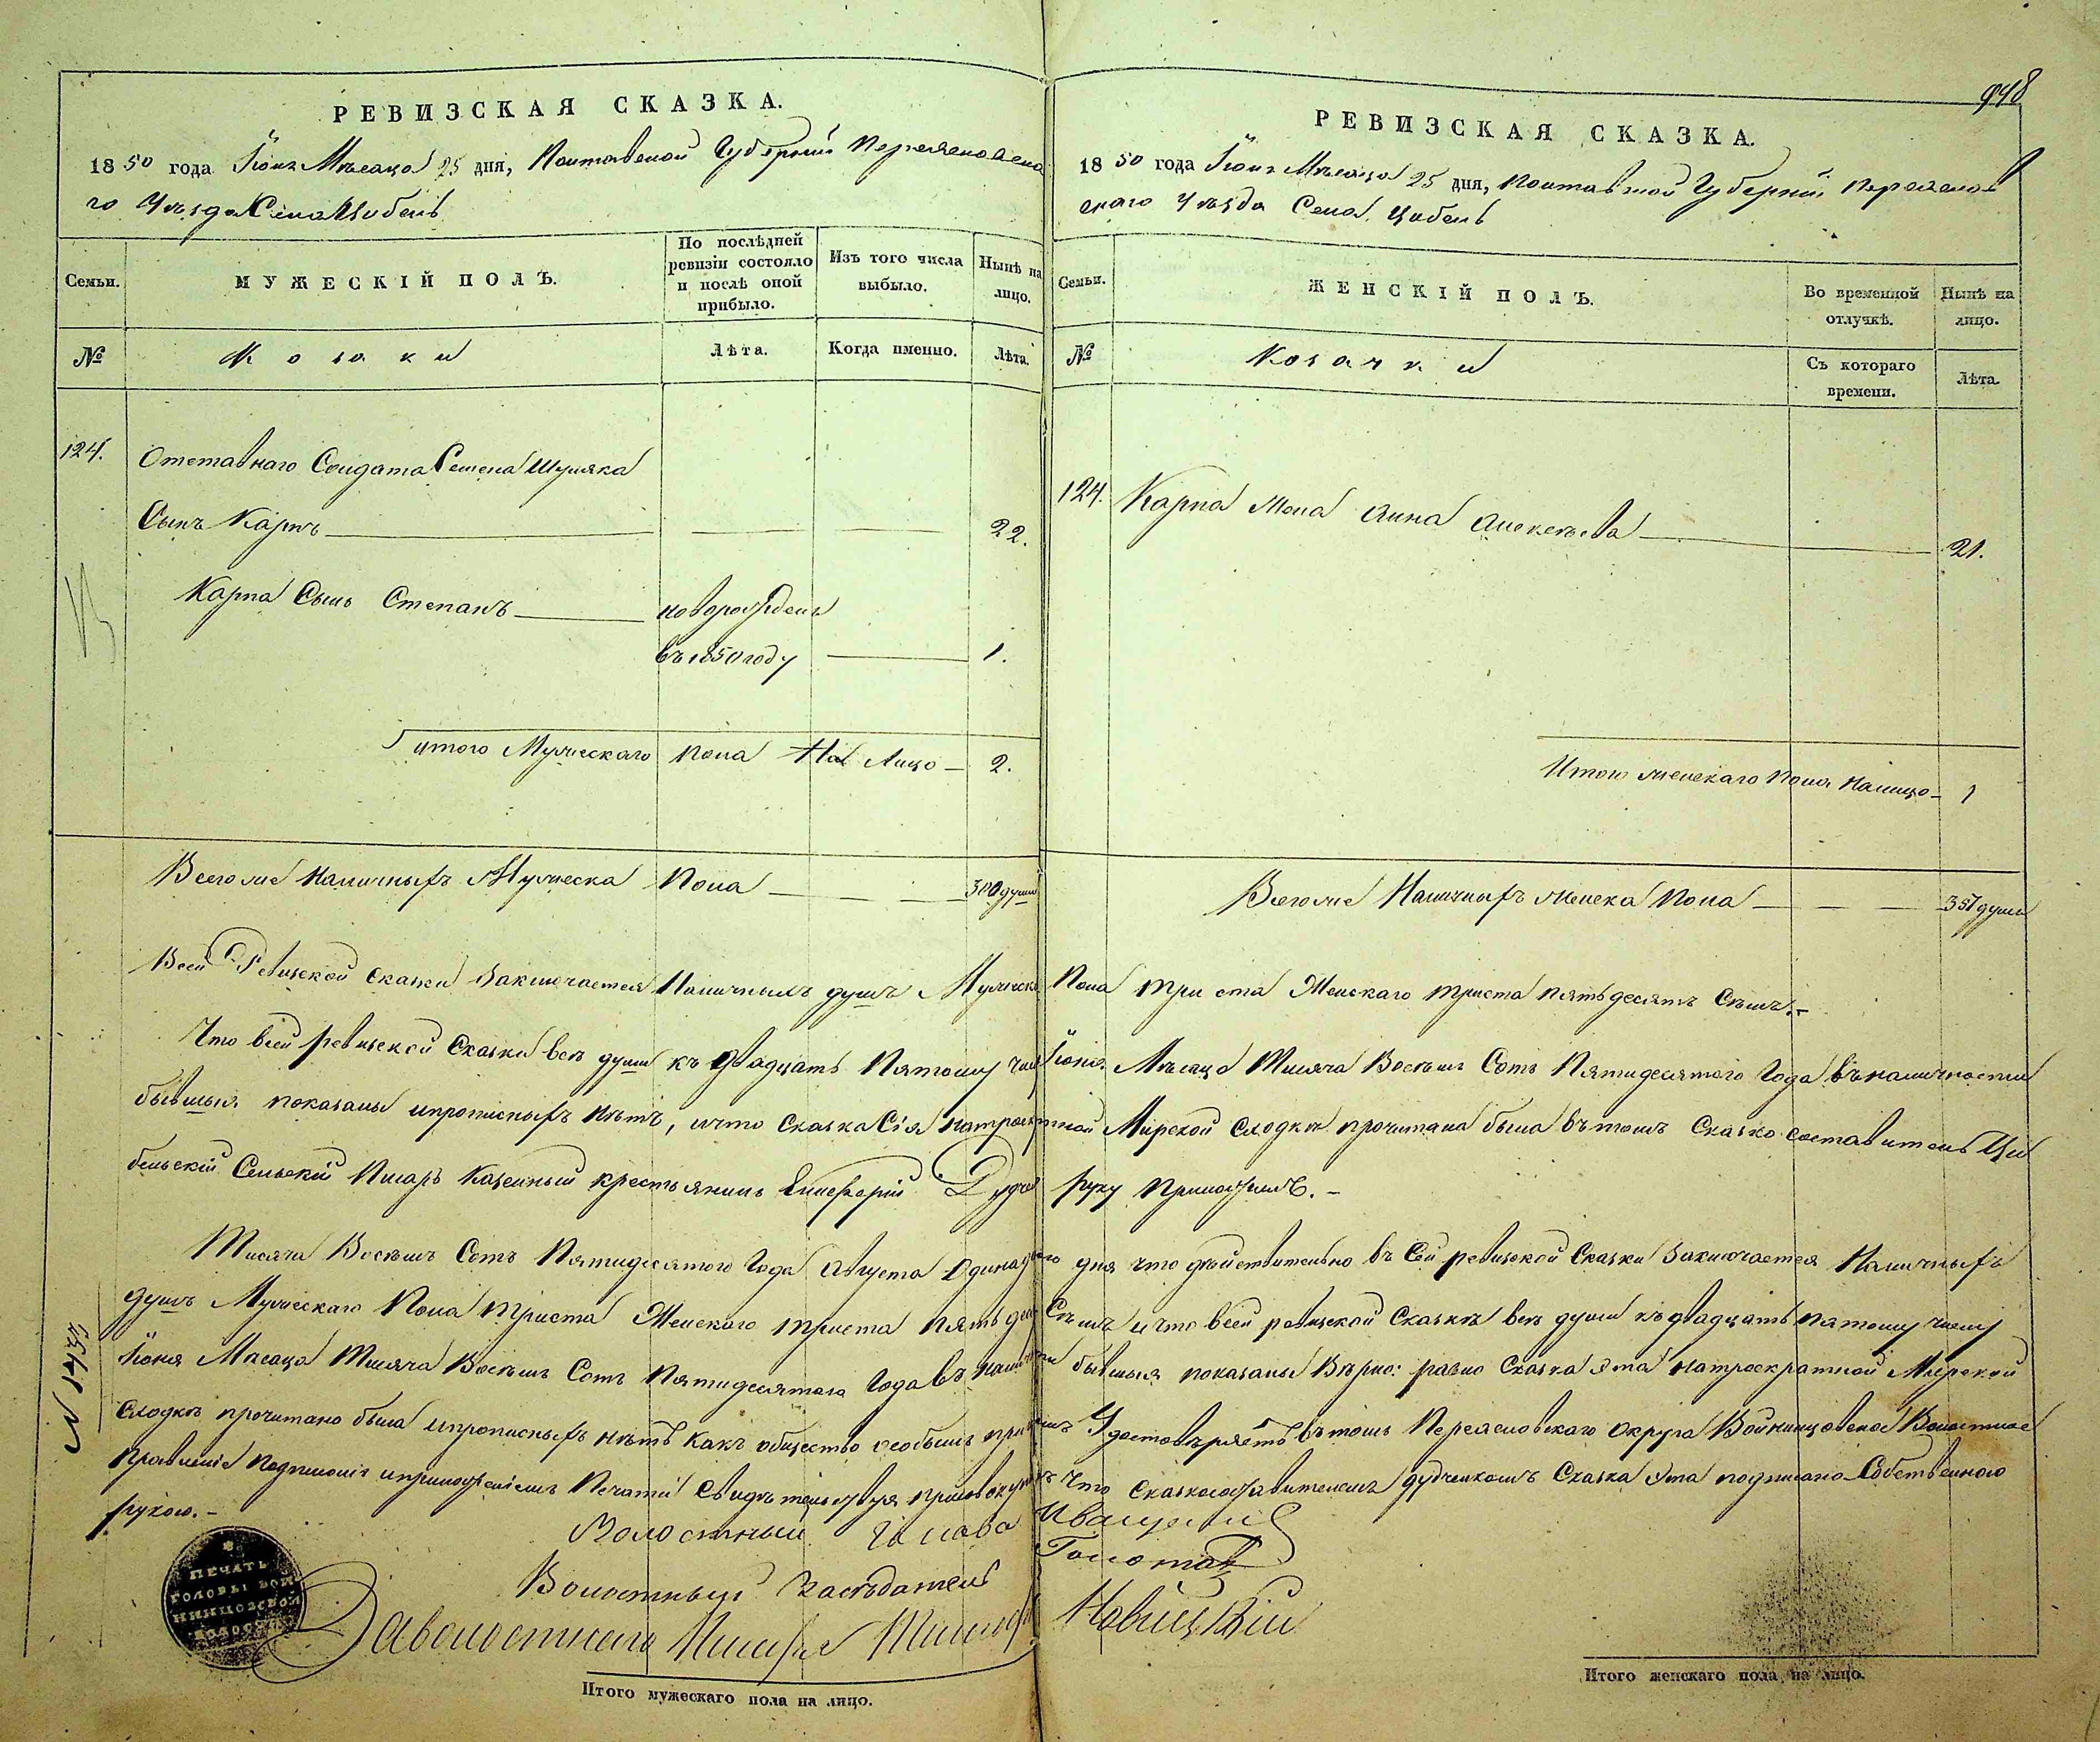 948
РЕВИЗСКАЯ СКАЗКА.
1850 года Іюня Мѣсяца 25 дня, Полтавской Губерніи Переяславска
го Уѣзда Села Цибель
Семьи.
МУЖЕСКІЙ ПОЛЪ.
По послѣдней ревизіи состояло и послѣ оной прибыло.
Изъ того числа выбыло.
Нынѣ на лицо.
№
Козаки
Лѣта.
Когда именно.
Лѣта.
124. Отставнаго Солдата Семена Шуляка
Сынъ Карпъ 22.
Карпа Сынъ Степанъ новорожденъ
въ 1850 году 1.
Итого Мужескаго пола На Лицо 2.
Всего же Наличныхъ Мужеска Пола 300 душъ
РЕВИЗСКАЯ СКАЗКА.
1850 года Іюня Мѣсяца 25 дня, Полтавской Губерніи Переяслов
скаго Уѣзда Села Цибель
Семьи.
ЖЕНСКІЙ ПОЛЪ.
Во временной отлучкѣ.
Нынѣ на лицо.
№
Козачки
Съ котораго времени.
Лѣта.
124. Карпа жена Анна Алексѣева 21.
Итого женскаго Пола Налицо 1
Всего же Наличныхъ женска Пола 357 душъ
Всей Ревизской сказки Заключается Наличныхъ душъ Мужеска Пола три ста Женскаго триста пятьдесятъ Семь.
Что всей ревизской Сказки всѣ души къ двадцать Пятому чис Іюня Мѣсяца Тисяча Восѣмъ Сотъ Пятидесятого Года въ наличности
бывшыя показаны ипрописныхъ нѣтъ, ичто Сказка Сія натрое тной Мирской Сходкѣ прочитана была вътомъ Сказко составитель Ци
бельскій Сельскій Писарь Казенный крестьянинъ руку Приложилъ.
Тисяча Восѣмъ Сотъ Пятидесятого Года Августа Одинад дня что дѣйствительно въ Сей ревизской Сказки Заключается Наличныхъ
душъ Мужескаго Пола триста Женскаго триста пятьдес Сѣмъ ичто всей ревизской Сказкѣ всѣ души къ двадцать пятому числу
Іюня Мѣсяца Тисяча Восѣмъ Сотъ Пятидесятого Года въ налич бывшыя показаны Вѣрно: равно Сказка Эта натроекратной Мирской
Сходкѣ прочитано была ипрописныхъ нѣтъ какъ общество особымъ Удостовѣряетъ вътомъ Переясловского округа Войнинцовское Волостное
Правленіе Подписомъ иприложеніемъ Печати Свидѣтельствуя что сказкосоставителемъ Дудченкомъ Сказка Эта подписано Собственною
рукою.
Волостный Голова Иващенко
Волостный Засѣдатель Голота
За волостнаго Писаря Новицкій
№ 1435
ПЕЧАТЬ
ГОЛОВЫ ВОЙ
НИНЦОВСКОЙ
ВОЛОСТИ
Итого мужескаго пола на лицо.
Итого женскаго пола на лицо.